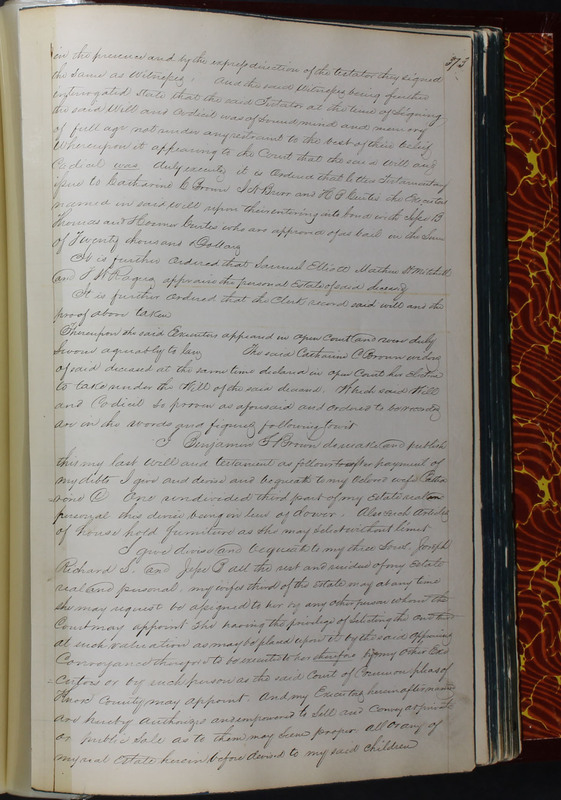 373
in the presence and by the express direction of the testator they signed
the same as Witnesses. And the said Witnesses being further
interrogated state that the said Testator at the time of Signing
the said Will and Codicil was of sound mind and memory
of full age not under any restraint to the best of their belief
Whereupon it appearing to the Court that the said Will and
Codicil was duly executed it is ordered that letters Testamentary
issue to Catharine C Brown and H Curtis the Executors
named in said will upon their entering into bond with Jesse B
Thomas and Hosmer Curtis who are approved of as bail in the Sum
of Twenty thousand Dollars
It is further ordered that Samuel Elliott Mathew H Mitchell
and appraise the personal Estate of said deceased
It is further ordered that the Clerk record said will and the
proof above taken
Thereupon the said Executors appeared in open Court and were duly
Sworn agreeably to law The said Catharine C Brown widow
of said deceased at the same time declared in open Court her election
to take under the Will of the said deceased. Which said Will
and Codicil so proven as aforesaid and ordered to be recorded
are in the words and figures following to wit
I Benjamin F Brown do make and publish
this my last Will and testament as follows to wit after payment of
my debts I give and devise and bequeath to my beloved wife Catha
rine C One undivided third part of my Estate real and
personal this devise being in lieu of dower. Also such articles
of house hold furniture as she may select without limit
I give devise and bequeath to my three Sons Joseph
Richard S. and Jesse T all the rest and residue of my Estate
real and personal. my wifes third of the estate may at any time
she may request be assigned to her by any other person whom the
Court may appoint She having the privilege of selecting the
at such valuation as may be placed upon it by the said Appraisers
Conveyances therefore to be executed to her therefore by my other Ex
ecutors or by such person as the said Court of Common pleas of
Knox County may appoint. And my Executors hereinafter named
are hereby Authorized and empowered to Sell and Convey at private
or public Sale as to them may Seem proper all or any of
my real Estate herein before devised to my said children